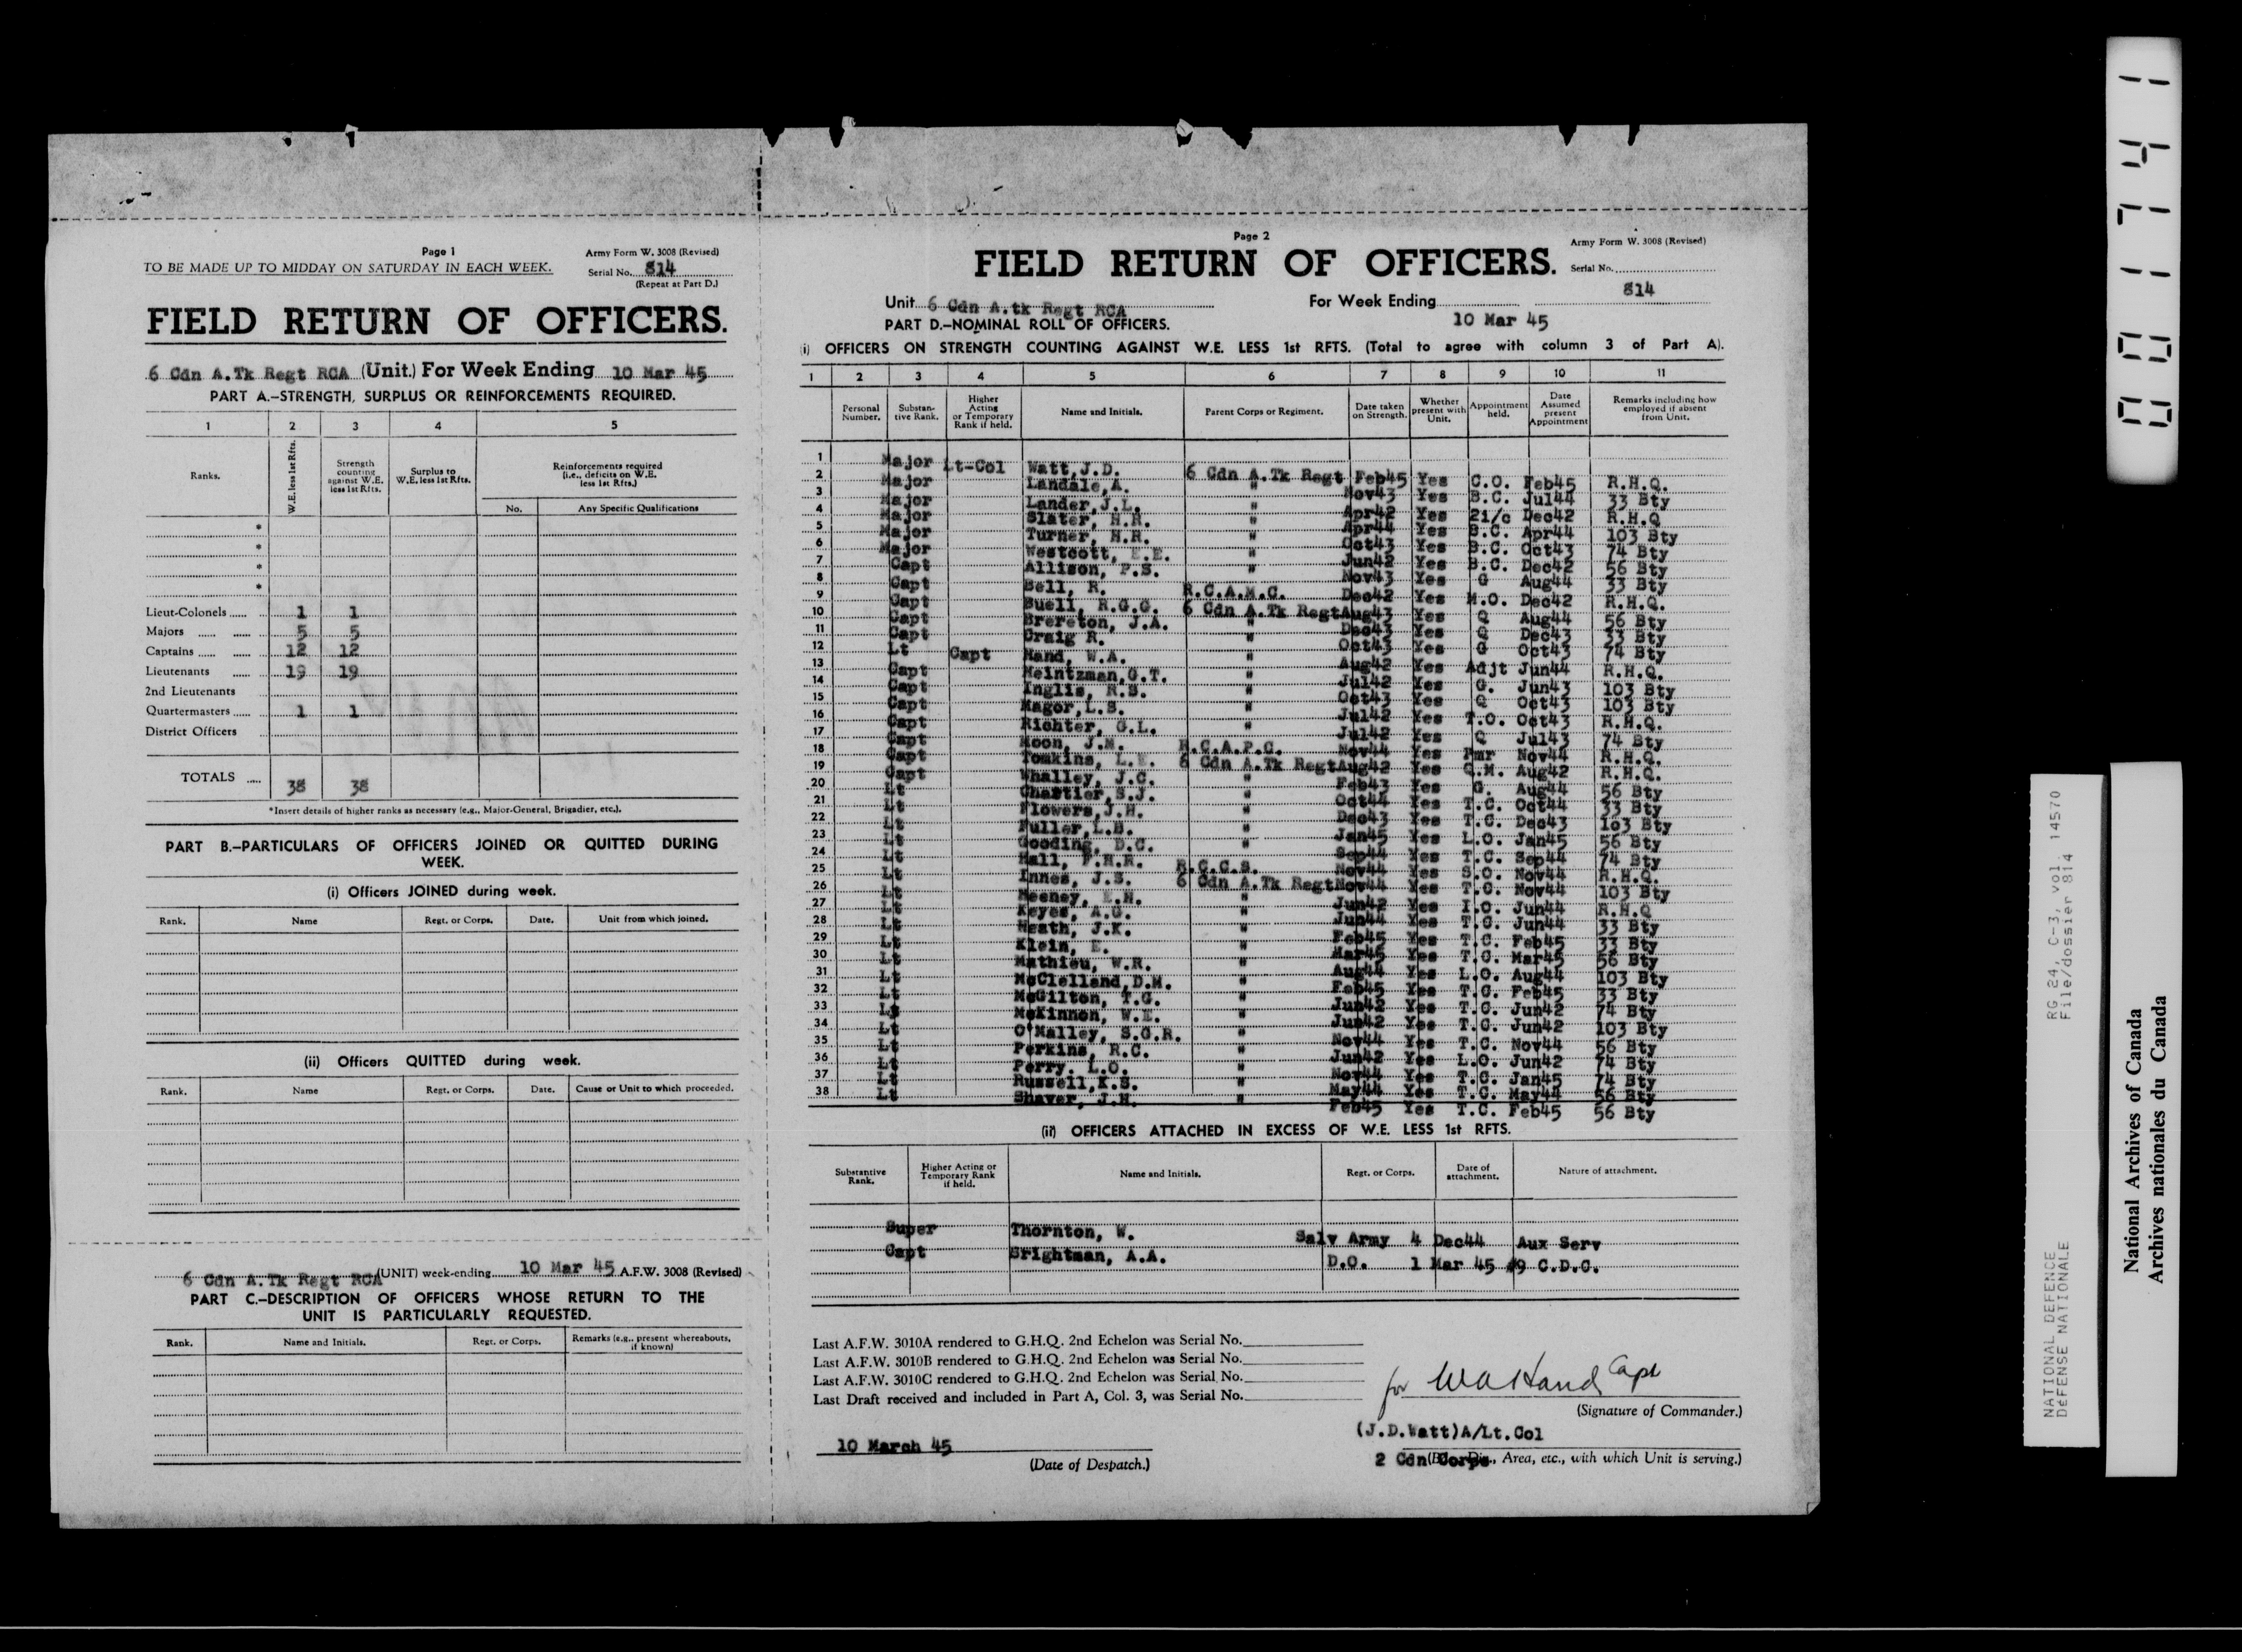 Page 1
Army Form W. 3008 (Revised)
TO BE MADE UP TO MIDDAY ON SATURDAY IN EACH WEEK.
Serial No. 814
(Repeat at Part D.)
FIELD RETURN OF OFFICERS.
6 Cdn A.Tk Regt RCA (Unit.) For Week Ending 10 Mar 45
PART A.-STRENGTH, SURPLUS OR REINFORCEMENTS REQUIRED.
1 2 3 4 5
Ranks. W.E. less 1st Rfts. Strength counting against W.E. less 1st Rfts. Surplus to W.E. less 1st Rfts. Reinforcements required (i.e., deficits on W.E. less 1st Rfts.)
No. Any Specific Qualifications
*
*
*
*
Lieut-Colonels 1 1
Majors 5 5
Captains 12 12
Lieutenants 19 19
2nd Lieutenants
Quartermasters 1 1
District Officers
TOTALS 38 38
*Insert details of higher ranks as necessary (e.g., Major-General, Brigadier, etc.).
PART B.-PARTICULARS OF OFFICERS JOINED OR QUITTED DURING
WEEK.
(i) Officers JOINED during week.
Rank. Name Regt. or Corps. Date. Unit from which joined.
(ii) Officers QUITTED during week.
Rank. Name Regt. or Corps. Date. Cause or Unit to which proceeded.
6 Cdn A.Tk Regt RCA (UNIT) week-ending 10 Mar 45 A.F.W. 3008 (Revised)
PART C.-DESCRIPTION OF OFFICERS WHOSE RETURN TO THE
UNIT IS PARTICULARLY REQUESTED.
Rank. Name and Initials. Regt. or Corps. Remarks (e.g., present whereabouts, if known)
Page 2
Army Form W. 3008 (Revised)
FIELD RETURN OF OFFICERS.
Serial No.
814
Unit 6 Cdn A.tk Regt RCA For Week Ending
10 Mar 45
PART D.-NOMINAL ROLL OF OFFICERS.
(i) OFFICERS ON STRENGTH COUNTING AGAINST W.E. LESS 1st RFTS. (Total to agree with column 3 of Part A).
1 2 3 4 5 6 7 8 9 10 11
Personal Number. Substantive Rank. Higher Acting or Temporary Rank if held. Name and Initials. Parent Corps or Regiment. Date taken on Strength. Whether present with Unit. Appointment held. Date Assumed present Appointment Remarks including how employed if absent from Unit.
1 Major Lt-Col Watt,J.D. 6 Cdn A.Tk Regt Feb45 Yes C.O. Feb45 R.H.Q.
2 Major Landale,A. " Nov43 Yes B.C. Jul44 33 Bty
3 Major Lander,J.L. " Apr42 Yes 2i/c Dec42 R.H.Q
4 Major Slater, H.R. " Apr44 Yes B.C. Apr44 103 Bty
5 Major Turner, H.R. " Oct43 Yes B.C. Oct43 74 Bty
6 Major Westcott, E.E. " Jun42 Yes B.C. Dec42 56 Bty
7 Capt Allison, P.S. " Nov43 Yes G Aug44 33 Bty
8 Capt Bell, R. R.C.A.M.C. Dec42 Yes M.O. Dec42 R.H.Q.
9 Capt Buell, R.G.C. 6 Cdn A.Tk Regt Aug43 Yes Q Aug44 56 Bty
10 Capt Brereton, J.A. " Dec43 Yes Q Dec43 33 Bty
11 Capt Craig R. " Oct43 Yes G Oct43 74 Bty
12 Lt Capt Hand, W.A. " Aug42 Yes Adjt Jun44 R.H.Q.
13 Capt Heintzman,G.T. " Jul42 Yes G. Jun43 103 Bty
14 Capt Inglis, R.S. " Oct43 Yes Q Oct43 103 Bty
15 Capt Magor,L.S. " Jul42 Yes T.O. Oct43 R.H.Q.
16 Capt Richter, G.L. " Jul42 Yes Q Jul43 74 Bty
17 Capt Roon, J.M. R.C.A.P.C. Nov44 Yes Pmr Nov44 R.H.Q.
18 Capt Tomkins, L.E. 6 Cdn A.Tk Regt Aug42 Yes Q.M. Aug42 R.H.Q.
19 Capt Whalley, J.C. " Feb43 Yes G. Aug44 56 Bty
20 Lt Chartier,S.J. " Oct44 Yes T.C. Oct44 33 Bty
21 Lt Flowers,J.H. " Dec43 Yes T.C. Dec43 103 Bty
22 Lt Fuller,L.B. " Jan45 Yes L.O. Jan45 56 Bty
23 Lt Gooding, D.C. " Sep44 Yes T.C. Sep44 74 Bty
24 Lt Hall, F.H.R. R.C.C.S. Nov44 Yes S.O. Nov44 R.H.Q.
25 Lt Innes, J.S. 6 Cdn A.Tk Regt Nov44 Yes T.C. Nov44 103 Bty
26 Lt Keeney, E.H. " Jun42 Yes I.O. Jun44 R.H.Q
27 Lt Keyes, A.G. " Jun44 Yes T.C. Jun44 33 Bty
28 Lt Heath, J.K. " Feb45 Yes T.C. Feb45 33 Bty
29 Lt Klein, E. " Mar45 Yes T.C. Mar45 56 Bty
30 Lt Mathieu, W.R. " Aug44 Yes L.O. Aug44 103 Bty
31 Lt McClelland,D.M. " Feb45 Yes T.C. Feb45 33 Bty
32 Lt McGilton, T.G. " Jun42 Yes T.C. Jun42 74 Bty
33 Lt McKinnon, W.E. " Jun42 Yes T.C. Jun42 103 Bty
34 Lt O'Malley, S.G.R. " Nov44 Yes T.C. Nov44 56 Bty
35 Lt Perkins, R.C. " Jun42 Yes L.O. Jun42 74 Bty
36 Lt Perry. L.O. " Nov44 Yes T.C. Jan45 74 Bty
37 Lt Russell,K.S. " May44 Yes T.C. May44 56 Bty
38 Lt Shaver, J.H. " Feb45 Yes T.C. Feb45 56 Bty
(ii) OFFICERS ATTACHED IN EXCESS OF W.E. LESS 1st RFTS.
Substantive Rank. Higher Acting or Temporary Rank if held. Name and Initials. Regt. or Corps. Date of attachment. Nature of attachment.
Super Thornton, W. Salv Army 4 Dec44 Aux Serv
Capt Brightman, A.A. D.O. 1 Mar 45 #9 C.D.C.
Last A.F.W. 3010A rendered to G.H.Q. 2nd Echelon was Serial No.
Last A.F.W. 3010B rendered to G.H.Q. 2nd Echelon was Serial No.
Last A.F.W. 3010C rendered to G.H.Q. 2nd Echelon was Serial No.
Last Draft received and included in Part A, Col. 3, was Serial No.
for WAHand Capt
(Signature of Commander.)
(J.D.Watt)A/Lt.Col
10 March 45
(Date of Despatch.)
2 Cdn Corps Area, etc., with which Unit is serving.)
001741
RG 24, C-3, vol. 14570
File/dossier 814
NATIONAL DEFENCE
DEFENSE NATIONALE
National Archives of Canada
Archives nationales du Canada